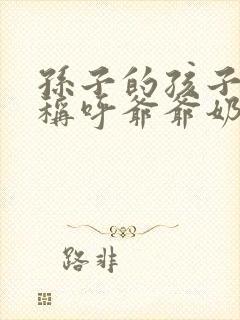 孫子的孩子
稱呼爺爺奶
路非